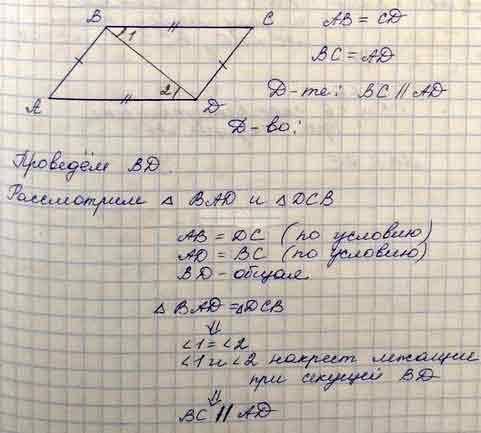 B
C
AB = CD
1
BC = AD
2
A
D
Д-ть: BC || AD
Д-во:
Проведём BD.
Рассмотрим △ BAD и △DCB
AB = DC (по условию)
AD = BC (по условию)
BD - общая
△ BAD = △DCB
⇓
∠1 = ∠2
∠1 и ∠2 накрест лежащие
при секущей BD
⇓
BC || AD